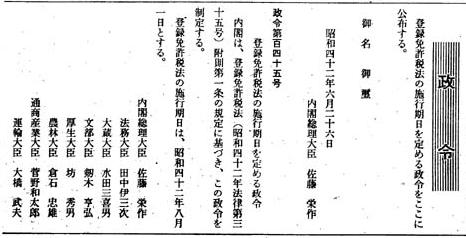 政令
登録免許税法の施行期日を定める政令をここに
公布する。
御名 御璽
昭和四十二年六月二十六日
内閣総理大臣 佐藤 栄作
政令第百四十五号
登録免許税法の施行期日を定める政令
内閣は、登録免許税法(昭和四十二年法律第三
十五号)附則第一条の規定に基づき、この政令を
制定する。
登録免許税法の施行期日は、昭和四十二年八月
一日とする。
内閣総理大臣 佐藤 栄作
法務大臣 田中伊三次
大蔵大臣 水田三喜男
文部大臣 剱木 亨弘
厚生大臣 坊 秀男
農林大臣 倉石 忠雄
通商産業大臣 菅野和太郎
運輸大臣 大橋 武夫